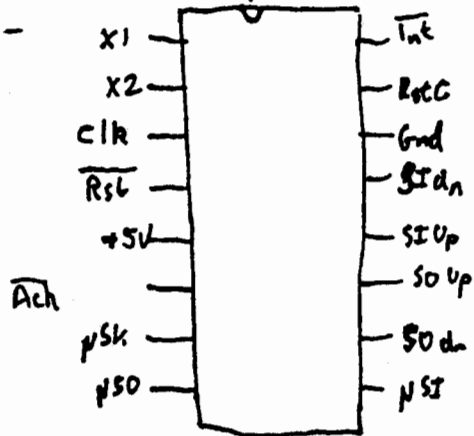 X1
X2
Clk
Rst
+5V
Ach
μSK
μSO
Int
RstC
Gnd
SIdn
SIUp
SOUp
SOdn
μSI